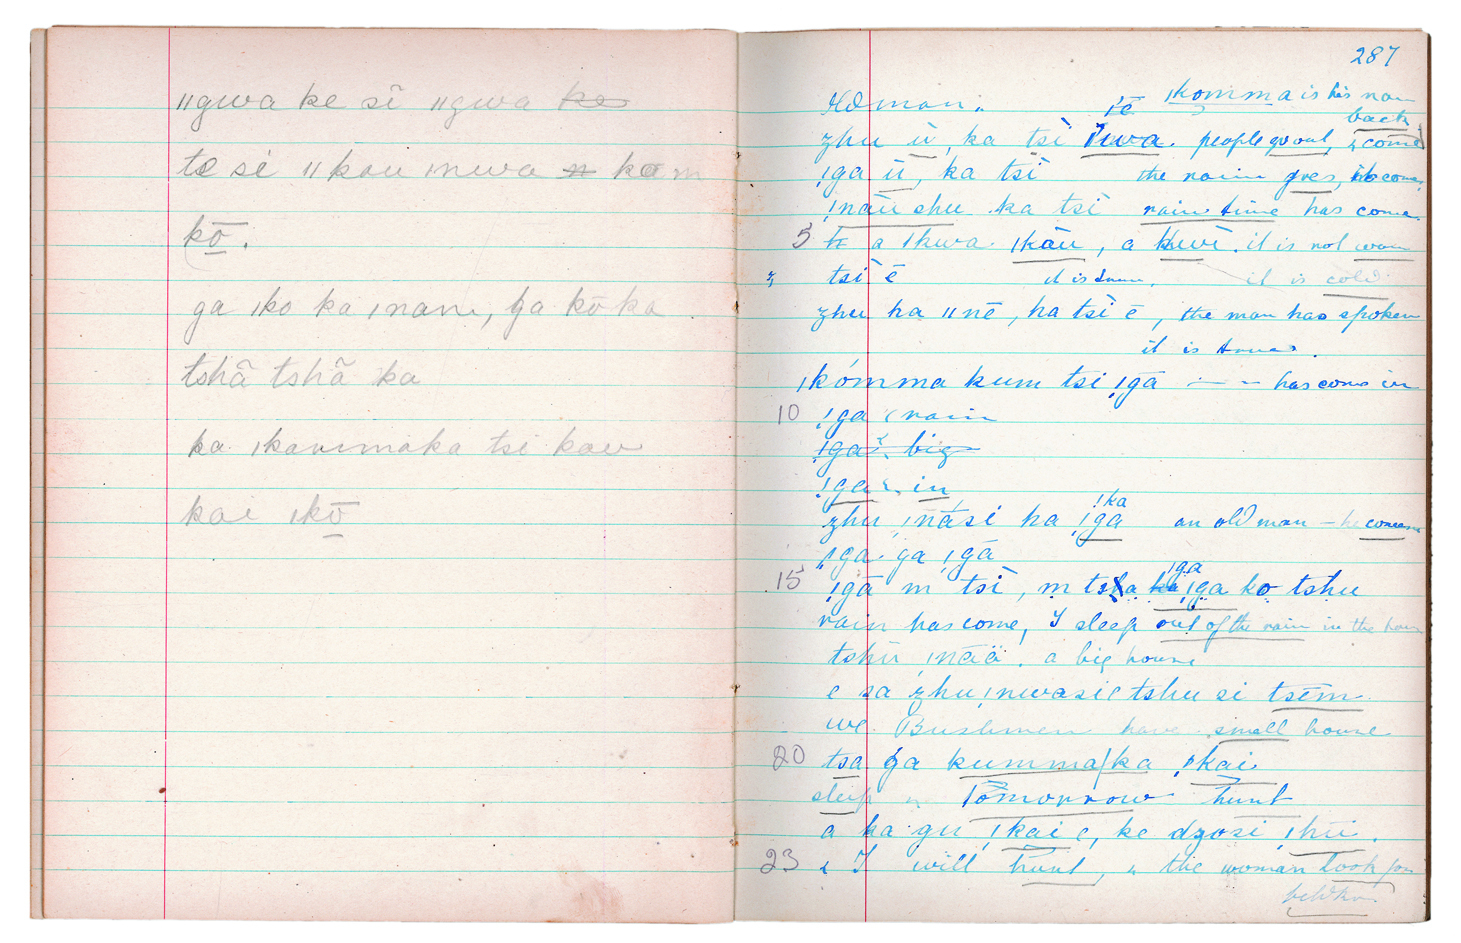 ǁgwa ke sĩ ǁgwa ke
te sé ǁkau ǀnwa ka m
kō.
ga ǀko ka ǀnam, ga kō ka
tshã tshã ka
ka ǀkammaka tsi kau
kai ǀkō
287
Old man. ǀkomma is his
back
zhu ù, ka tsì. people go out, & come
ǃga ù, ka tsi the rain goes, come
ǃnau shu ka tsi rain time has come
5 a ǀkwa ǀkāu, a kuvi. it is not warm
tsi ē it is it is cold
zhu ha ǁnē, ha tsi ē, the man has spoken
it is
ǀkómma kum tsi ǃgā — - has come in
10 ǃga rain
ǃga big
ǃga in
ǃka
zhu ǃnāsi ha ǃga an old man - he comes
ǃga ga ǃgā
ǃga
15 ǃgā m tsi, m tsha ka ǃga ko tshu
rain has come, I sleep out of the rain in the
tshū ǃnāä. a big house
e sa zhu ǃnwasi e tshu si tsēm
we Bushmen have small house
20 tsa ga kumma/ka ǃkai
sleep tomorrow hunt
a ka gu ǃkai e, ke dzosi ǀhū.
23 & I will hunt, & the woman look for